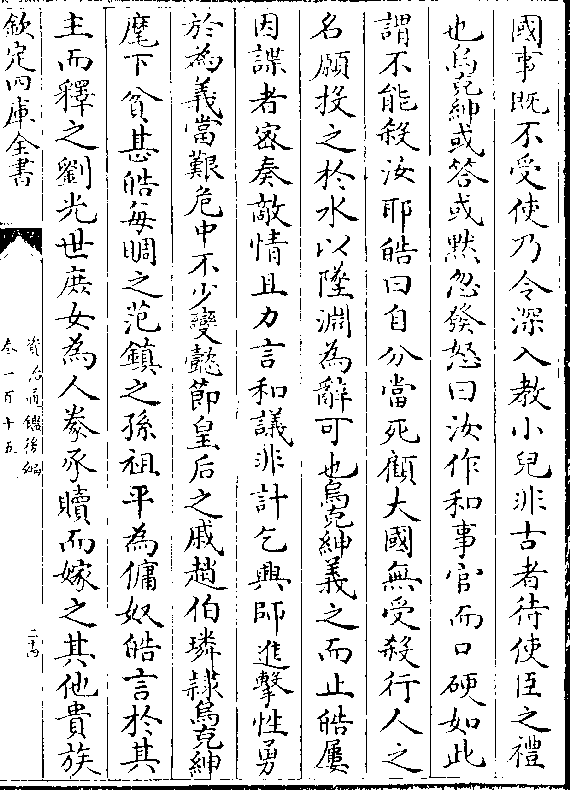 國事既不受使乃令深入教小兒非古者待使臣之禮
也烏克紳或答或默忽發怒曰汝作和事官而口硬如此
謂不能殺汝耶皓曰自分當死顧大國無受殺行人之
名願投之於水以墜淵為辭可也烏克紳義之而止皓屢
因諜者密奏敵情且力言和議非計乞興師進擊性勇
於為義當艱危中不少變懿節皇后之戚趙伯璘隸烏克紳
麾下貧甚皓每賙之范鎮之孫祖平為傭奴皓言於其
主而釋之劉光世庶女為人豢豕贖而嫁之其他貴族
欽定四庫全書
資治通鑑後編
卷一百十五
二十四